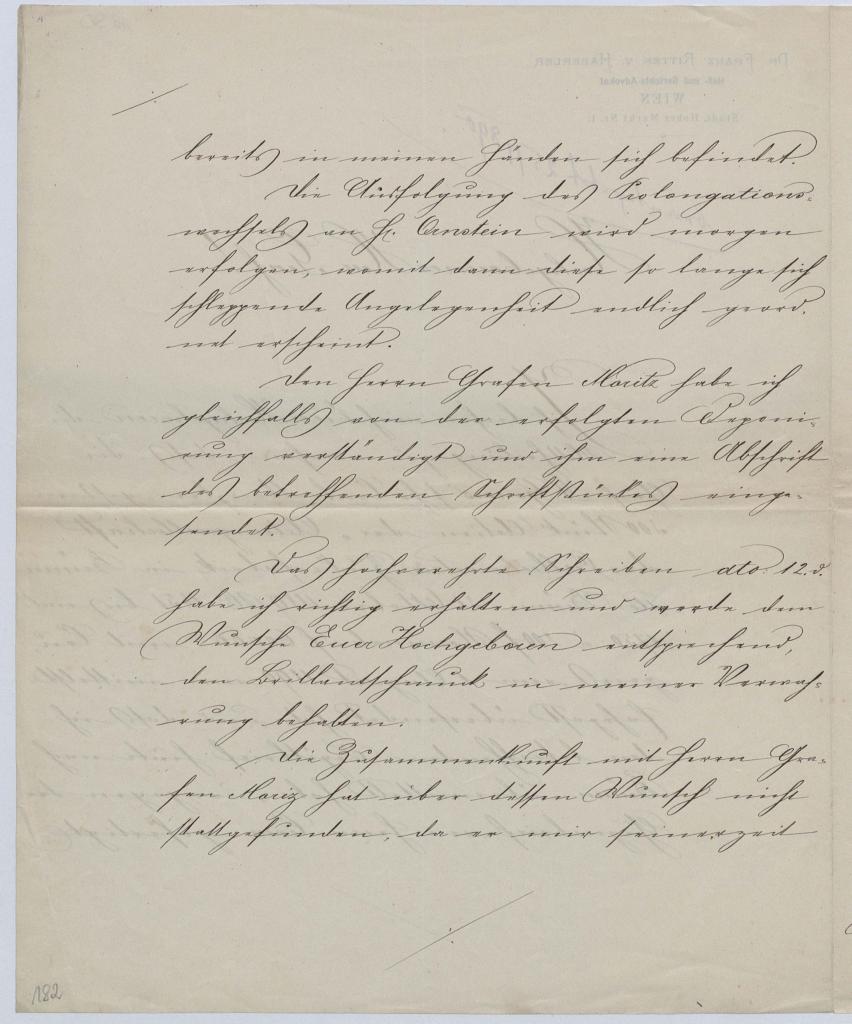 bereits in meinen Händen sich befindet.
Die Ausfolgung des Prolongations-
wechsels an H. Ornstein wird morgen
erfolgen, womit dann diese so lange sich
schleppende Angelegenheit endlich geord-
net erscheint.
Den Herrn Grafen Moritz habe ich
gleichfalls von der erfolgten Deponi-
rung verständigt und ihm eine Abschrift
des betreffenden Schriftstückes einge-
sendet.
Das hochverehrte Schreiben dto: 12. d.
habe ich richtig erhalten und werde dem
Wunsche Euer Hochgeboren entsprechend,
den Brillantschmuck in meiner Verwah-
rung behalten.
Die Zusammenkunft mit Herrn Gra-
fen Moriz hat über dessen Wunsch nicht
stattgefunden, da er mir seinerzeit
182